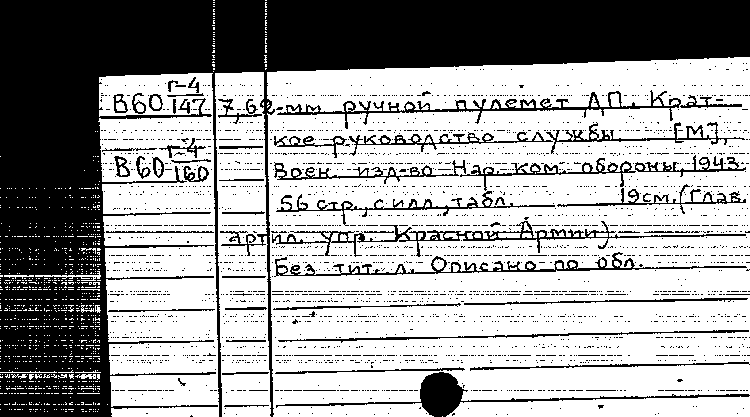 В60 г-4/147 7,62-мм ручной пулемет ДП. Крат-
кое руководство службы. [М.],
В60 г-4/160 Воен. изд-во Нар. ком. обороны, 1943.
56 стр., с илл., табл. 19см. (Глав.
артил. упр. Красной Армии).
Без тит. л. Описано по обл.